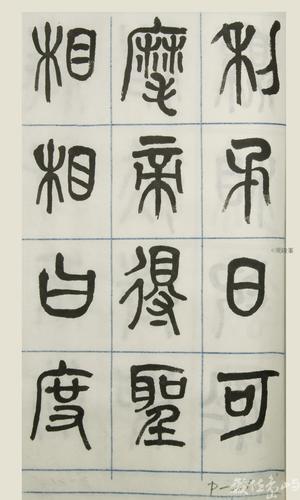 利弔日可
麾帝得聖
相相白度